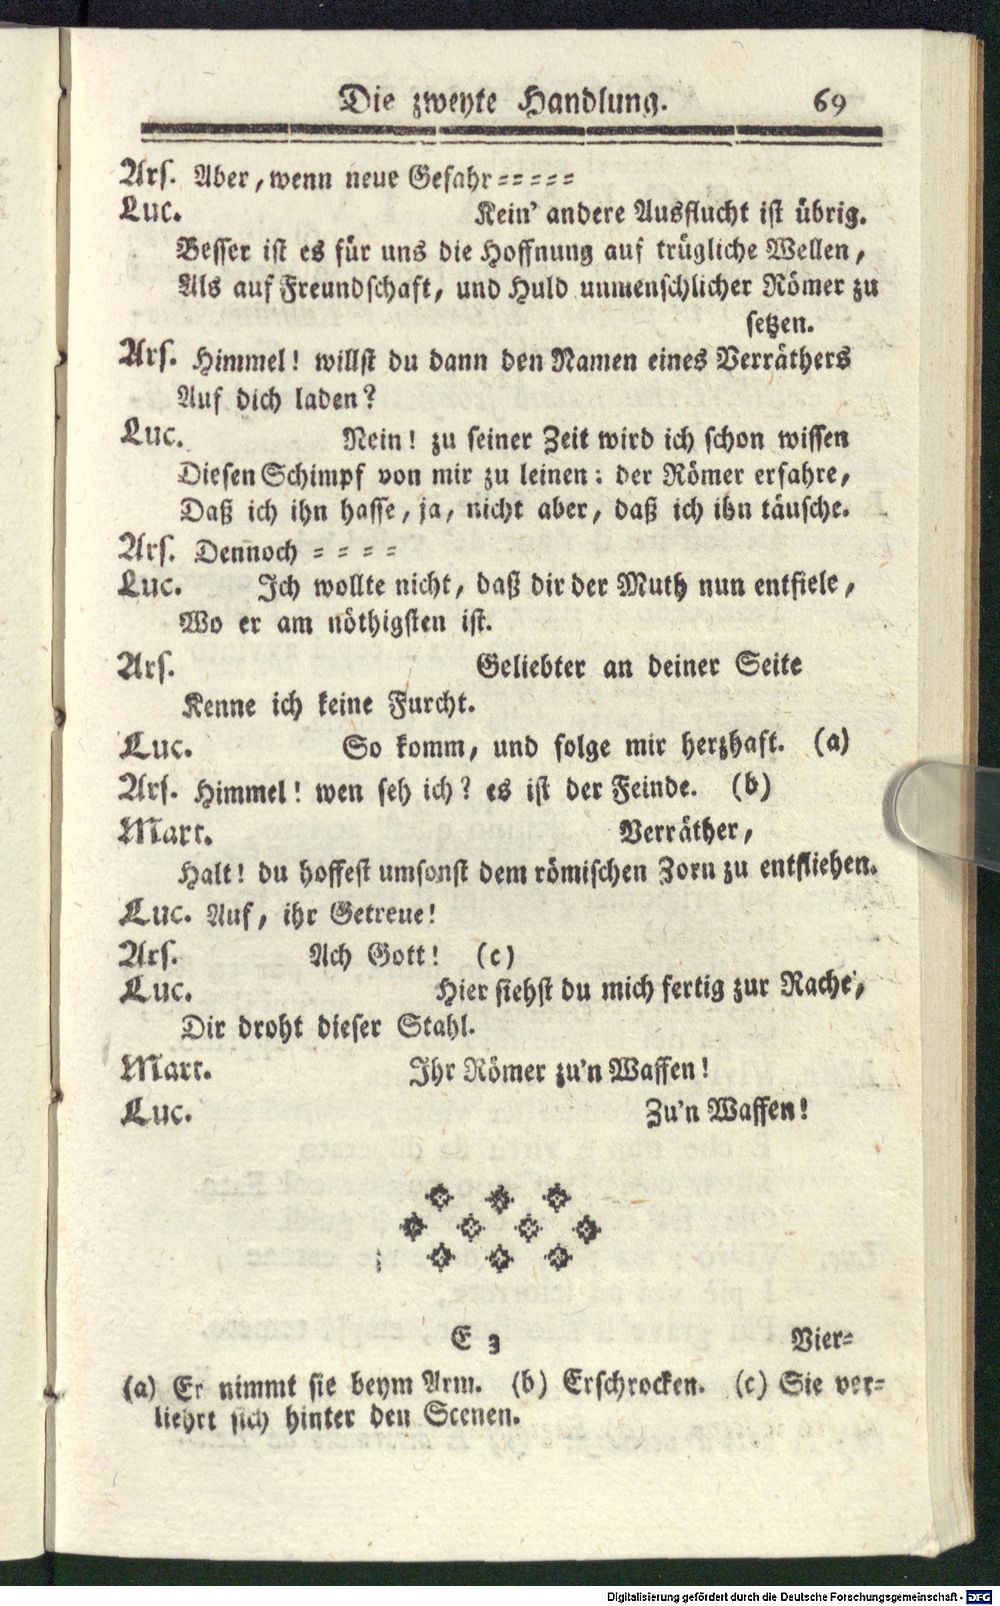 Die zweyte Handlung. 69
Ars. Aber, wenn neue Gefahr=====
Luc. Kein' andere Ausflucht ist übrig.
Besser ist es für uns die Hoffnung auf trügliche Wellen,
Als auf Freundschaft, und Huld unmenschlicher Römer zu
setzen.
Ars. Himmel! willst du dann den Namen eines Verräthers
Auf dich laden?
Luc. Nein! zu seiner Zeit wird ich schon wissen
Diesen Schimpf von mir zu leinen: der Römer erfahre,
Daß ich ihn hasse, ja, nicht aber, daß ich ihn täusche.
Ars. Dennoch = = = =
Luc. Ich wollte nicht, daß dir der Muth nun entfiele,
Wo er am nöthigsten ist.
Ars. Geliebter an deiner Seite
Kenne ich keine Furcht.
Luc. So komm, und folge mir herzhaft. (a)
Ars. Himmel! wen seh ich? es ist der Feinde. (b)
Marr. Verräther,
Halt! du hoffest umsonst dem römischen Zorn zu entfliehen.
Luc. Auf, ihr Getreue!
Ars. Ach Gott! (c)
Luc. Hier siehst du mich fertig zur Rache,
Dir droht dieser Stahl.
Marr. Ihr Römer zu'n Waffen!
Luc. Zu'n Waffen!
E 3 Vier=
(a) Er nimmt sie beym Arm. (b) Erschrocken. (c) Sie ver=
liehrt sich hinter den Scenen.
Digitalisierung gefördert durch die Deutsche Forschungsgemeinschaft - DFG